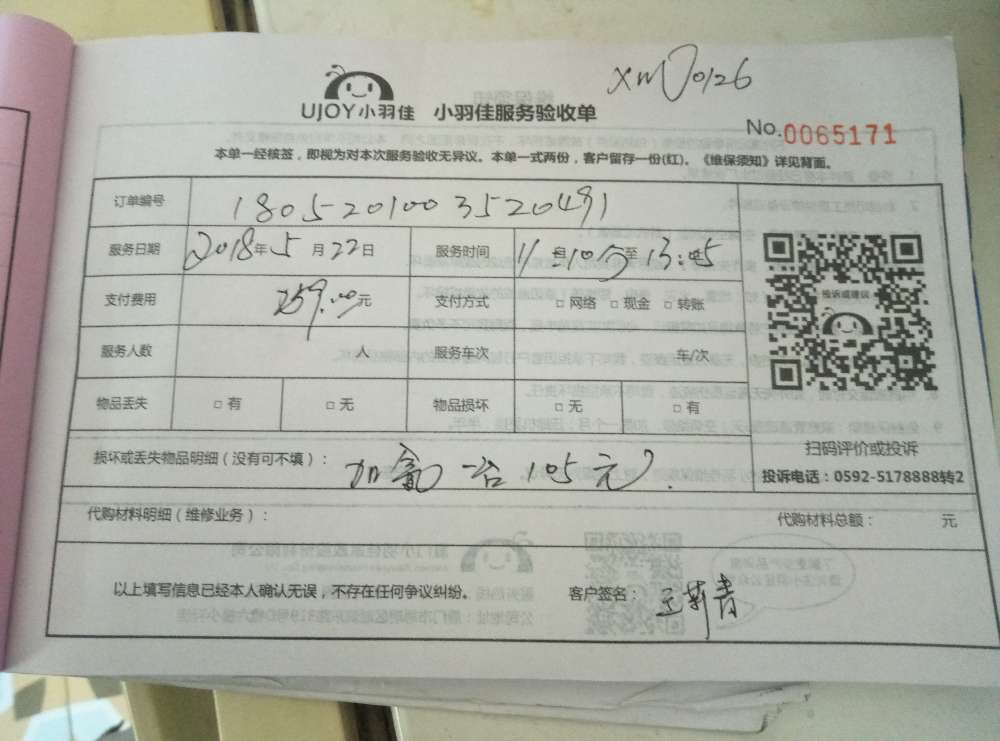 xm 0126
UJOY小羽佳 小羽佳服务验收单
No.0065171
本单一经核签，即视为对本次服务验收无异议。本单一式两份，客户留存一份(红)。《维保须知》详见背面。
订单编号 1805201003520491
服务日期 2018年5月22日 服务时间 11 10分至13:05
支付费用 259.00元 支付方式 □ 网络 □ 现金 □ 转账
投诉或建议
服务人数 人 服务车次 车/次
物品丢失 □ 有 □ 无 物品损坏 □ 无 □ 有
扫码评价或投诉
损坏或丢失物品明细（没有可不填）： 加氟一台105元.
投诉电话：0592-5178888转2
代购材料明细（维修业务）： 代购材料总额： 元
以上填写信息已经本人确认无误，不存在任何争议纠纷。 客户签名：